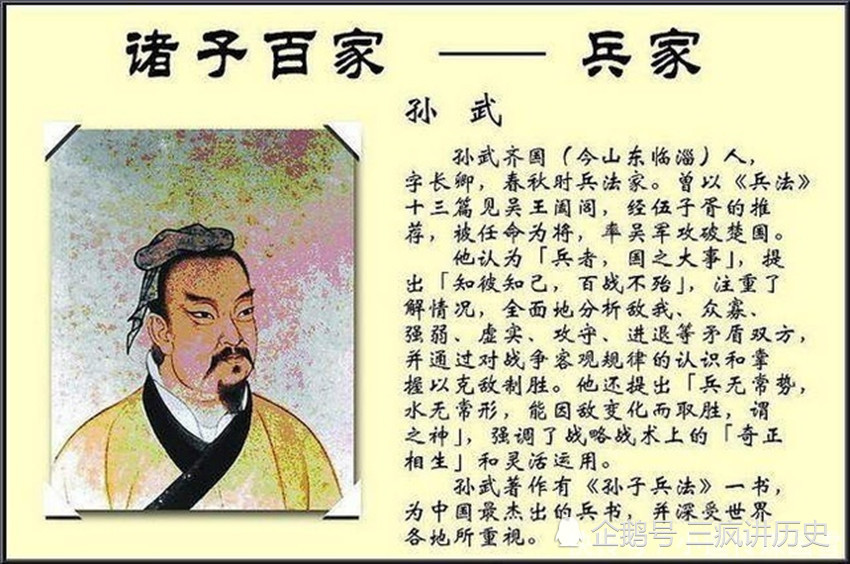 诸子百家 —— 兵家
孙 武
孙武齐国（今山东临淄）人，
字长卿，春秋时兵法家。曾以《兵法》
十三篇见吴王阖闾，经伍子胥的推
荐，被任命为将，率吴军攻破楚国。
他认为「兵者，国之大事」，提
出「知彼知己，百战不殆」，注重了
解情况，全面地分析敌我、众寡、
强弱、虚实、攻守、进退等矛盾双方，
并通过对战争客观规律的认识和掌
握以克敌制胜。他还提出「兵无常势，
水无常形，能因敌变化而取胜，谓
之神」，强调了战略战术上的「奇正
相生」和灵活运用。
孙武著作有《孙子兵法》一书，
为中国最杰出的兵书，并深受世界
各地所重视。
企鹅号 三疯讲历史